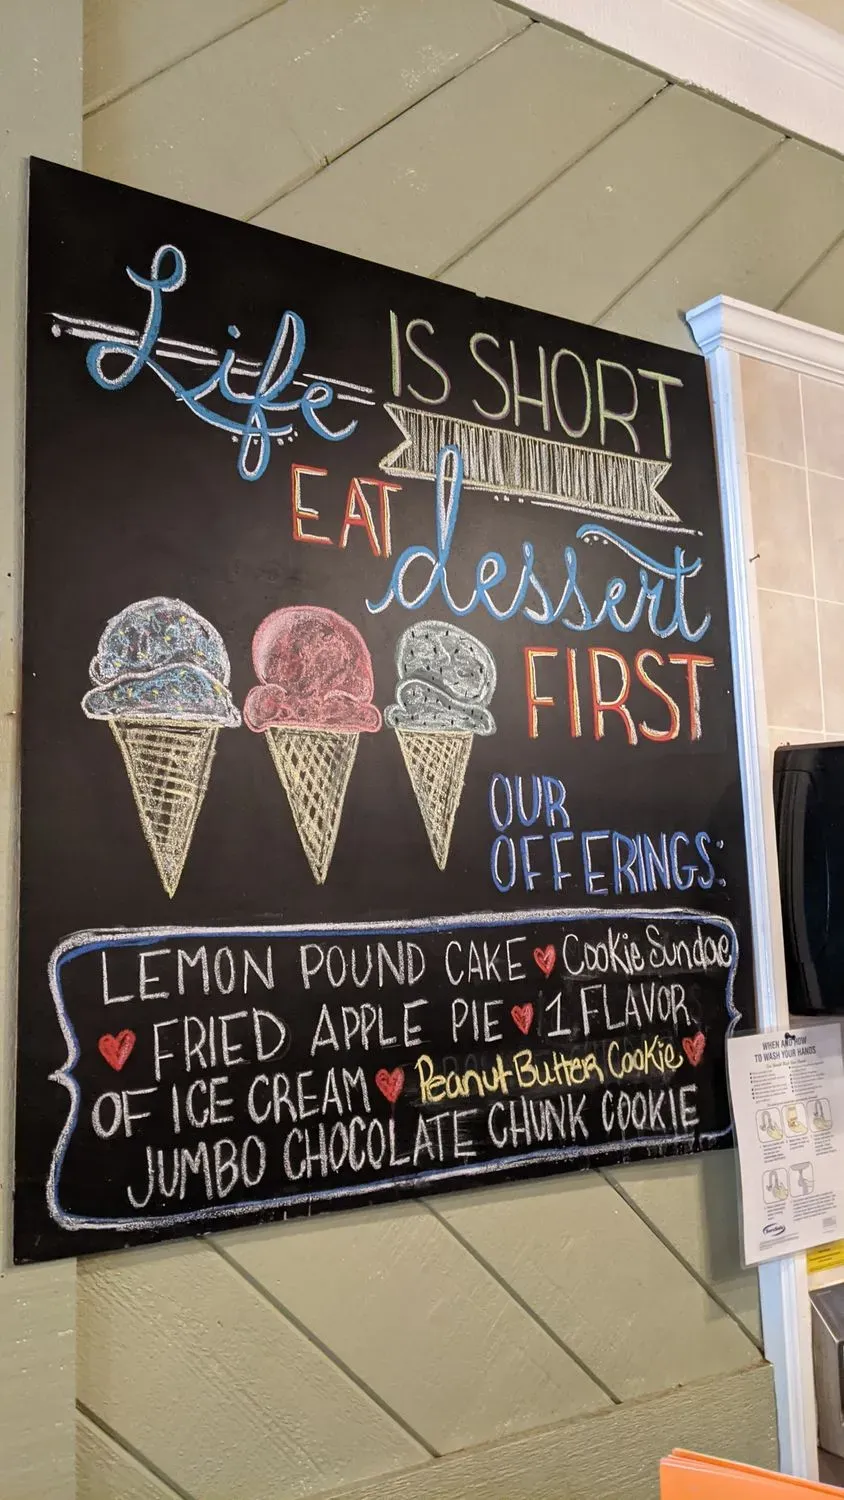 Life IS SHORT
EAT dessert
FIRST
OUR
OFFERINGS:
LEMON POUND CAKE Cookie Sundae
FRIED APPLE PIE 1 FLAVOR
OF ICE CREAM Peanut Butter Cookie
JUMBO CHOCOLATE CHUNK COOKIE
WHEN AND HOW
TO WASH YOUR HANDS